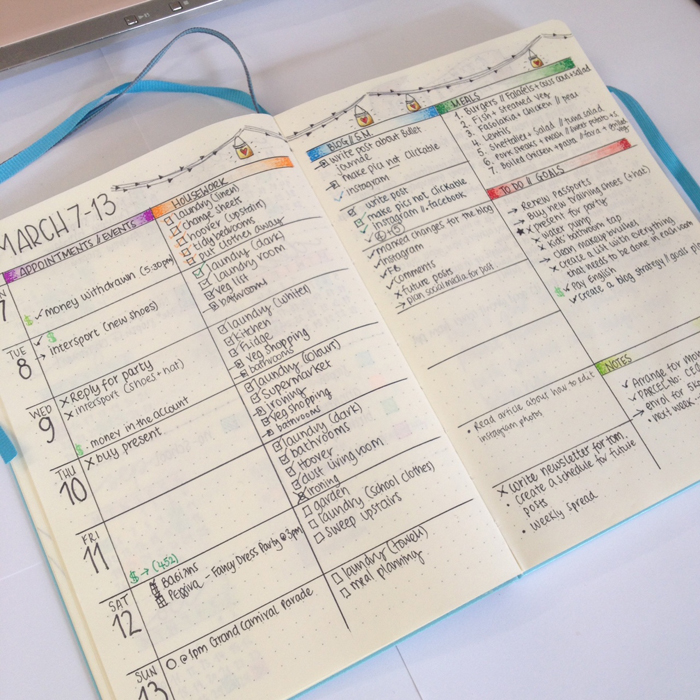 MARCH 7-13
APPOINTMENTS // EVENTS
7
money withdrawn (5:30pm)
TUE
8
$
intersport (new shoes)
WED
9
Reply for party
intersport (shoes + hat)
$. money in the account
THU
10
buy present
FRI
11
$ → (452)
SAT
12
Fancy Dress Party @ 3pm
SUN
13
@ 1pm Grand Carnival Parade
HOUSEWORK
laundry (linen)
change sheets
hoover (upstairs)
tidy bedrooms
put clothes away
laundry (dark)
laundry room
veg list
bathrooms
laundry (white)
kitchen
Fridge
veg shopping
bathrooms
laundry (colours)
Supermarket
ironing
veg shopping
bathrooms
laundry (dark)
bathrooms
Hoover
dust living room
ironing
garden
laundry (school clothes)
sweep upstairs
laundry (towels)
meal planning
BLOG // S.M.
write post about Bullet
journal
make pics not clickable
instagram
write post
make pics not clickable
instagram + facebook
marked changes for the blog
instagram
FB
comments
future posts
plan social media for post
Read article about how to edit
instagram photos
Write newsletter for tom.
create a schedule for future
posts
weekly spread
MEALS
1. Burgers // Falafels + cous cous + salad
2. Fish + steamed veg
3. Fasolakia + chicken // peas
4. Lentils
5. Sheftalies + salad // tuna salad
6. Pork steaks +
7. Boiled chicken + pasta
TO DO // GOALS
Renew passports
Buy new training shoes (+ hat)
present for party
water pump
kids' bathroom tap
clean makeup brushes
Create a list with everything
that needs to be done in each room
$ Pay English
Create a blog strategy // goals
NOTES
Arrange for
PARCEL NO:
enrol for
next week